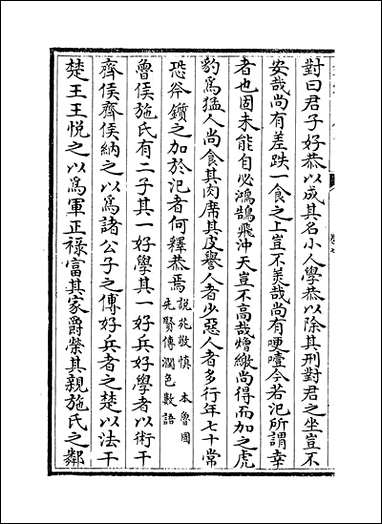 對曰君子好恭以成其名小人學恭以除其刑對君之坐豈不
安哉尚有差跌一食之上豈不羙哉尚有哽噎今若氾所謂幸
者也固未能自必鴻鵠飛沖天豈不高哉矰繳尚得而加之虎
豹為猛人尚食其肉席其皮譽人者少惡人者多行年七十常
恐斧鑕之加於氾者何釋恭焉
說苑敬慎 本魯國
先賢傳潤色數語
魯侯施氏有二子其一好學其一好兵好學者以術干
齊侯齊侯納之以為諸公子之傅好兵者之楚以法干
楚王王悅之以為軍正祿富其家爵榮其親施氏之鄰